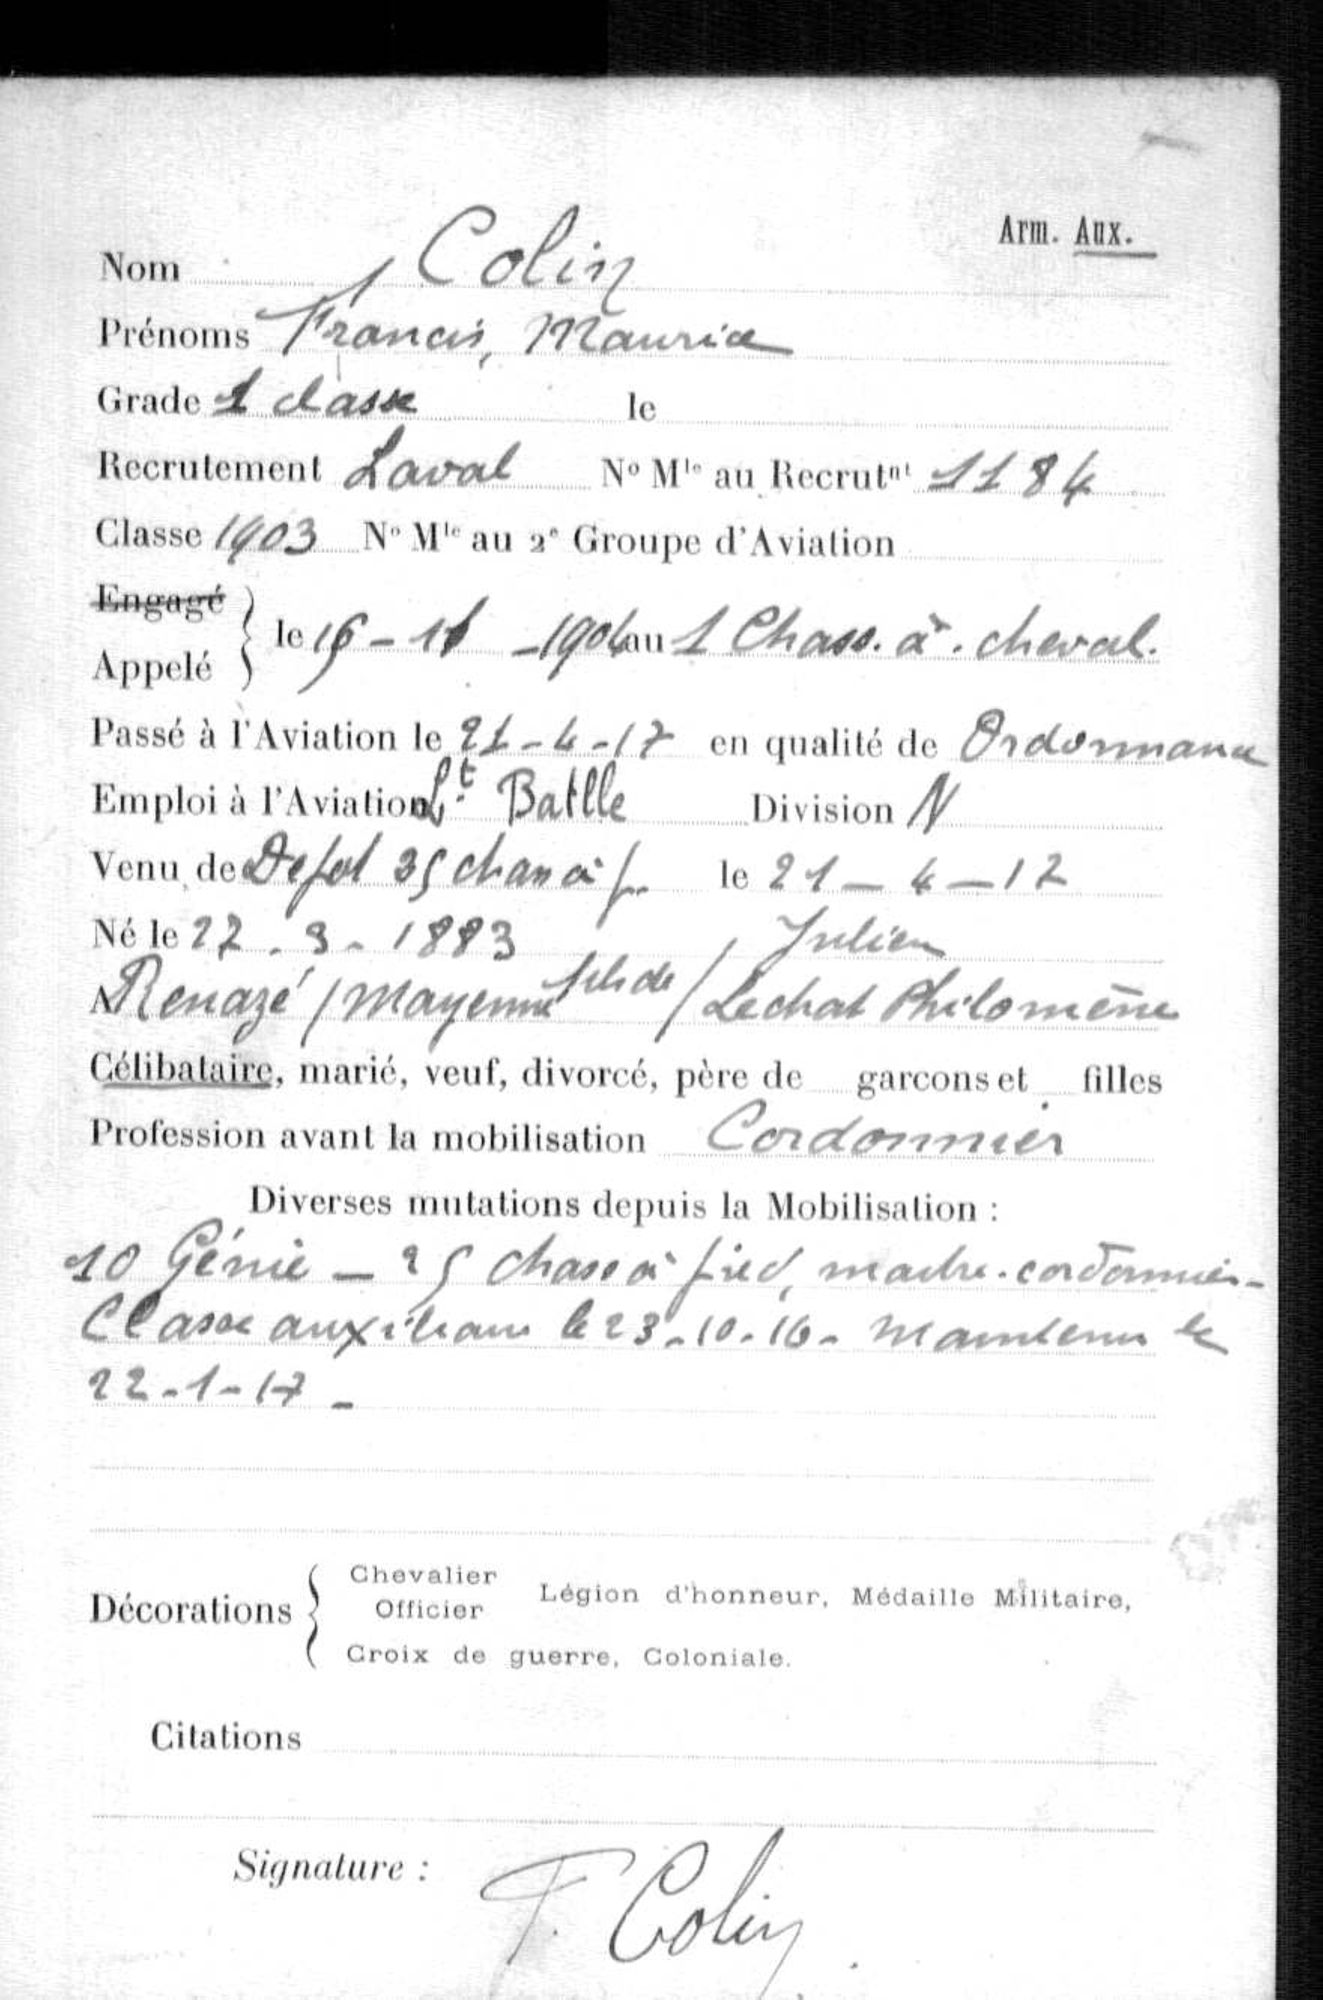 Arm. Aux.
Nom Colin
Prénoms Francis, Maurice
Grade 1 classe le
Recrutement Laval No Mle au Recrutnt 1184
Classe 1903 No Mle au 2e Groupe d'Aviation
Engagé
Appelé le -1904 au 1 Chass. à. cheval.
Passé à l'Aviation le 21-4-17 en qualité de Ordonnance
Emploi à l'Aviation Lt. Batlle Division N
Venu de Depot chass à p. le 21-4-17
Né le 27.3.1883 Julien
A Renazé (Mayenne fils de / Lechat Philomène
Célibataire, marié, veuf, divorcé, père de garcons et filles
Profession avant la mobilisation Cordonnier
Diverses mutations depuis la Mobilisation :
10 Génie - 25 chass à pied, maitre-cordonnier-
Classe auxiliaire le 23-10-16- Maintenu le
22-1-17-
Décorations Chevalier Officier Légion d'honneur, Médaille Militaire,
Croix de guerre, Coloniale.
Citations
Signature : F. Colin